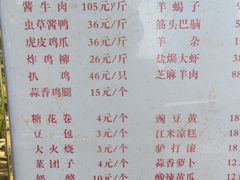 酱牛肉 105元/斤 羊蝎子
虫草酱鸭 36元/斤 筋头巴脑
虎皮鸡爪 36元/斤 羊杂
炸鸡柳 40元/斤 盐焗大虾
扒鸡 46元/只 芝麻羊肉
蒜香鸡腿 15元/个
糖花卷 4元/个 豌豆黄 18
豆包 3元/个 江米凉糕 18
大火烧 3元/个 驴打滚
菜团子 3元/个 蒜香萝卜
奶酪 10元/个 酸辣黄瓜